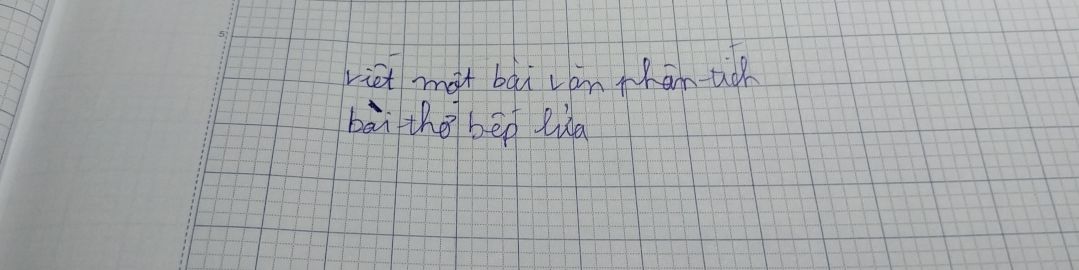 viết một bài văn phân tích
bài thơ bếp lửa